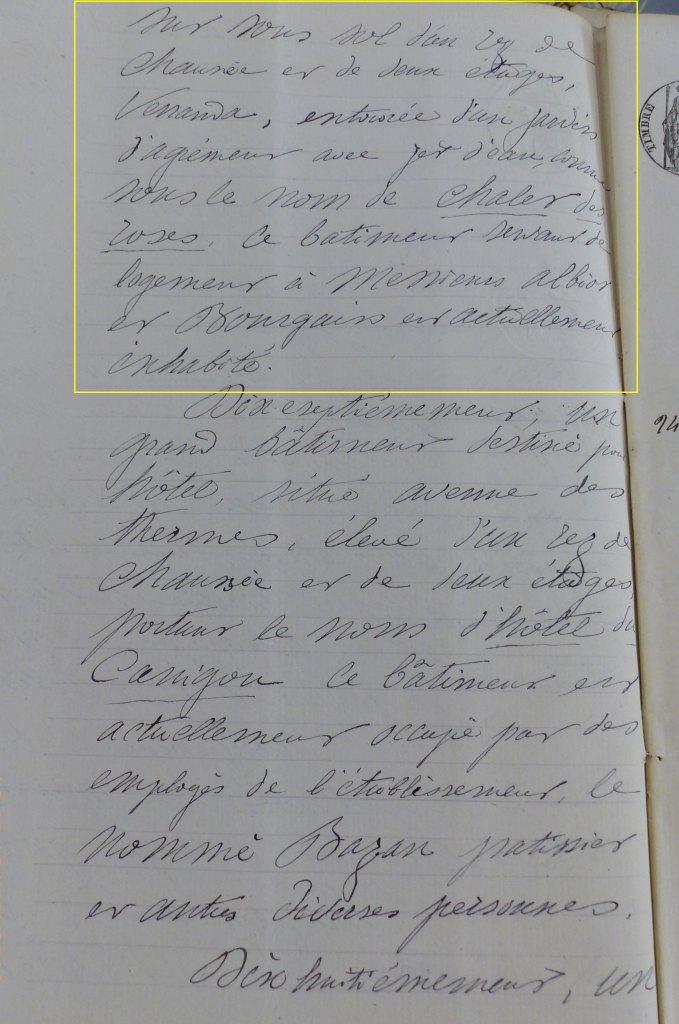 sur sous sol d'un rez de
chaussée et de deux étages,
Verranda, entourée d'un jardin
d'agrément avec jet d'eau, connu
sous le nom de chalet des
roses. Ce batiment servant de
logement à Messieurs Albiot
et Bourgain est actuellement
inhabité.
Dix septièmement, un
grand bâtiment destiné pour
hôtel, situé avenue des
thermes, élevé d'un rez de
chaussée et de deux étages,
portant le nom d'hôtel du
Canigou Ce bâtiment est
actuellement occupé par des
employés de l'établissement, le
nommé Bazan patissier
et autres diverses personnes.
Dix huitièmement, un
TIMBRE
94